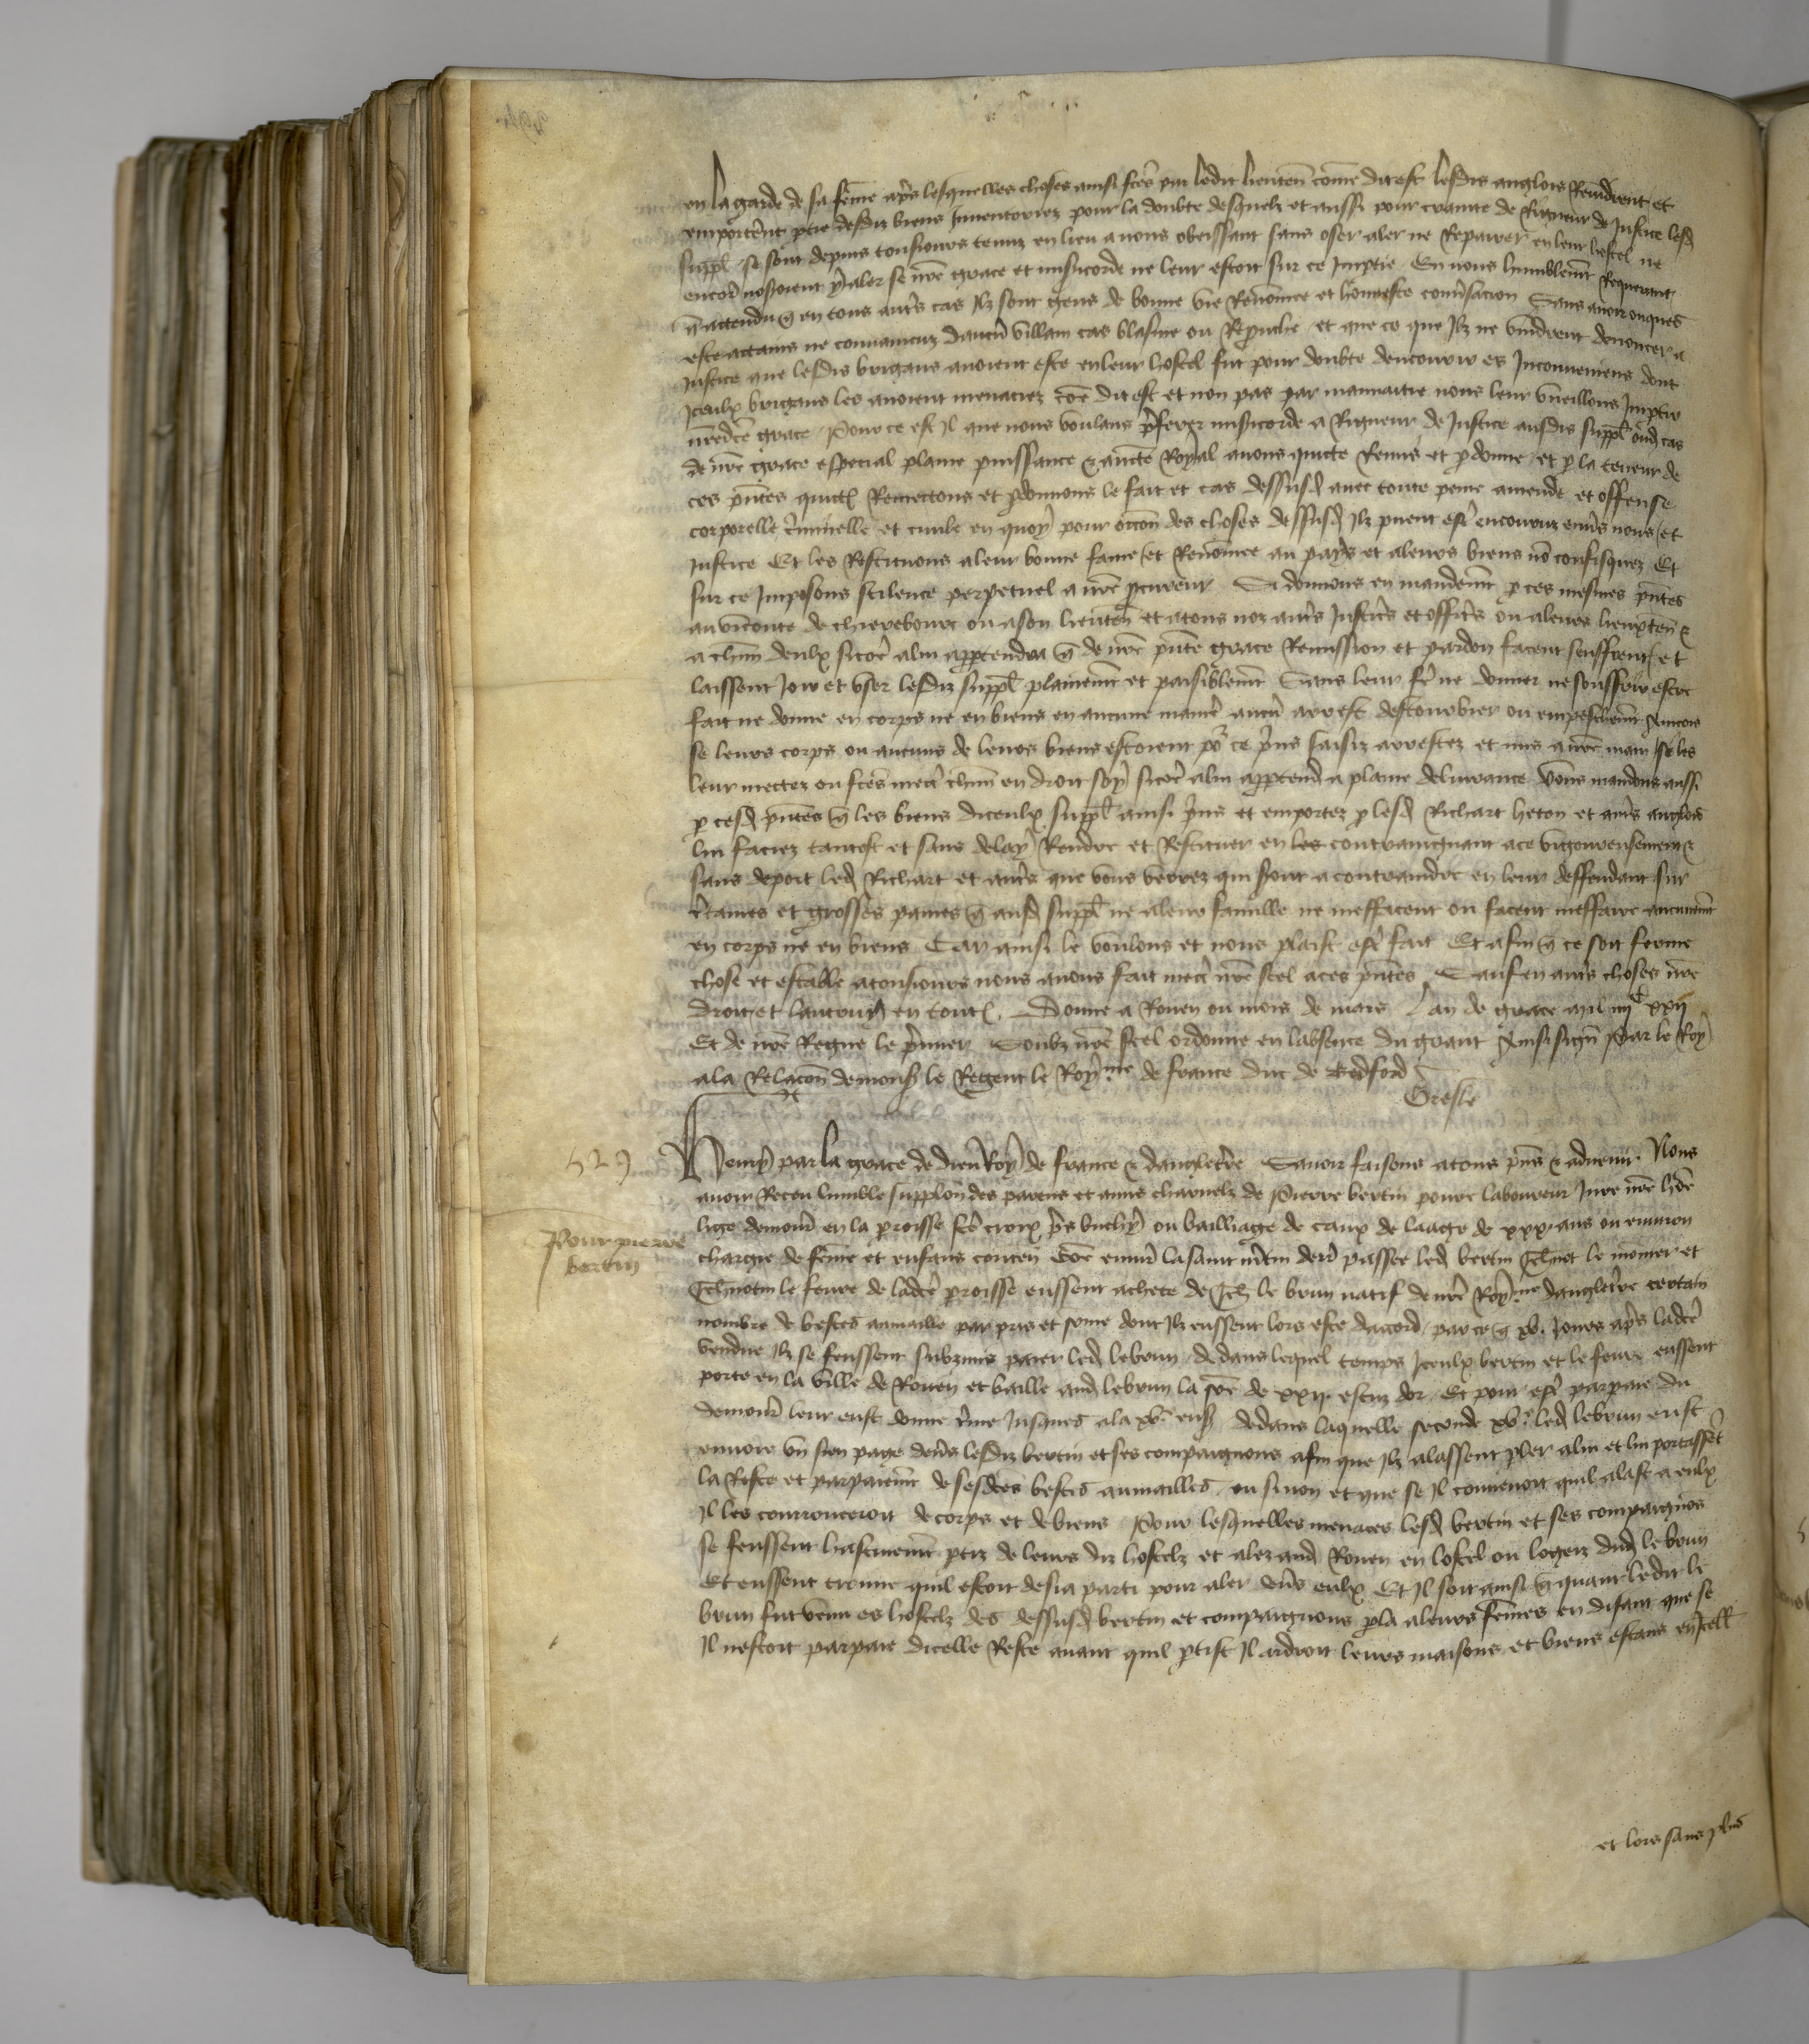 en la garde de sa feme apres lesquelles choses ainsi fces par ledit lieuten come dit est lesdis anglois Revindrent et
emporterent ptie desdiz biens Inventoriez pour la doubte desquelx et aussi pour crainte de Rigueur de Justice lesd
suppl se sont depuis tousiours tenuz en lieu a nous obeissant sans oser aler ne Repairer en leur hostel ne
encor nosoient y aler se nre grace et misicorde ne leur estoit sur ce Imptie En nous humblemt Requerant
q attendu q en tous autrs cas Ilz sont gens de bonne vie Renomee et honneste convsacion Sans avoir onques
este actains ne convaincuz daucun villain cas blasme ou Repruche et que ce que Ilz ne vindrent denoncer a
Justice que lesdis brigans avoient este en leur hostel fut pour doubte dencourir es Inconveniens dont
Iceulx brigans les avoient menaciez coe dit est et non pas par mauvaitie nous leur vueillons Imptir
nredce grace Pour ce est Il que nous voulans preferer misicorde a Rigueur de Justice ausdis suppl oud cas
de nre grace especial plaine puissance & aucte Royal avons quicte Remis et pdonne et p la teneur de
ces pntes quict Remectons et pdonnons le fait et cas dessusd avec toute peine amende et offense
corporelle criminelle et civile en quoy pour occon des choses dessusd Ilz pvent estre encouruz envs nous et
Justice Et les Restituons a leur bonne fame et Renomee au pays et a leurs biens no confisquez Et
sur ce Imposons scilence perpetuel a nre pcureur Si donnons en mandemt p ces mesmes pntes
au viconte de chierebourc ou a son lieuten et a tous noz autrs Justicrs et officrs ou a leurs lieuxten &
a chun deulx sicoe a lui apptendra q de nre pnte grace Remission et pardon facent seuffrent et
laissent Joir et user lesdiz suppl plainemt et paisiblemt Sans leur fe ne donner ne souffrir estre
fait ne donne en corps ne en biens en aucune mane aucu arrest destourbier ou empeschemt Aincois
se leurs corps ou aucuns de leurs biens estoient po ce prins saisiz arrestez et mis a nre main se les
leur mettez ou fces mectre chun en droit soy sicoe a lui apptend a plaine delivrance Vous mandons aussi
p cesd pntes q les biens diceulx suppl ainsi prins et emportez p lesd Richart heton et autrs anglois
lui faciez tantost et sans delay Rendre et Restituer en les contraignant a ce vigoureusement &
sans deport led Richart et autrs que vous verrez qui seront a contraindre en leur deffendant sur
crtaines et grosses paines q ausd suppl ne a leur famille ne meffacent ou facent meffaire aucunemt
en corps ne en biens Car ainsi le voulons et nous plaist estre fait Et afin q ce soit ferme
chose et estable a tousiours nous avons fait mectre nre scel a ces pntes Sauf en autrs choses nre
droit et lautruy en tout. Donne a Rouen ou mois de mars Lan de grace mil iiiic xxii
Et de nre Regne le pmier Soubz nre scel ordonne en labsence du grant Ainsi signe Par le Roy
a la Relacon de mons le Regent le Roy.me de france duc de Bedford
Gresle
529 Henry par la grace de dieu Roy de france & dangleterre Savoir faisons a tous pns & advenir. Nous
avoir Receu lumble supplon des parens et amis charnelz de Pierre bertin povre laboureur Jure nre hoe
lige demour en la proisse ste croix prs buchy ou bailliage de caux de laage de xxx. ans ou environ
Pour pierre
bertin
chargie de feme et enfans conten Coe environ la saint mrtin dern passee led bertin Jehnot le monier et
Jehnotin le fevre de ladce proisse eussent achete de Jeh le brun natif de nre Roy.me dangleterre certain
nombre de bestes aumaille par pris et some dont Ilz eussent lors este daccord / par ce q xv. Jours aprs ladce
vendue Ilz se feussent submis paier led lebrun dedans lequel temps Iceulx bertin et le fevre eussent
porte en la ville de Rouen et baille aud lebrun la soe de xxii. escuz dor Et pour estre parpaie du
demour leur eust donne trme Jusques a la xve. ens dedans laquelle seconde xve. led lebrun eust
envoie un sien page devrs lesdiz bertin et ses compaignons afin que Ilz alassent pler a lui et lui portassent
la Reste et parpaiemt de sesdces bestes aumailles ou sinon et que se Il convenoit quil alast a eulx
Il les courrouceroit de corps et de biens Pour lesquelles menaces lesd bertin et ses compaignos
se feussent hastivemt ptiz de leurs diz hostelz et alez aud Rouen en lostel ou logeiz dud lebrun
Et eussent trouve quil estoit desia parti pour aler devrs eulx Et Il soit ainsi q quant ledit le
brun fut venu es hostelz des dessusd bertin et compaignons pla a leurs femes en disant que se
Il nestoit parpaie dicelle Reste avant quil ptist Il ardroit leurs maisons et biens estans en Icell
et lors sans plus